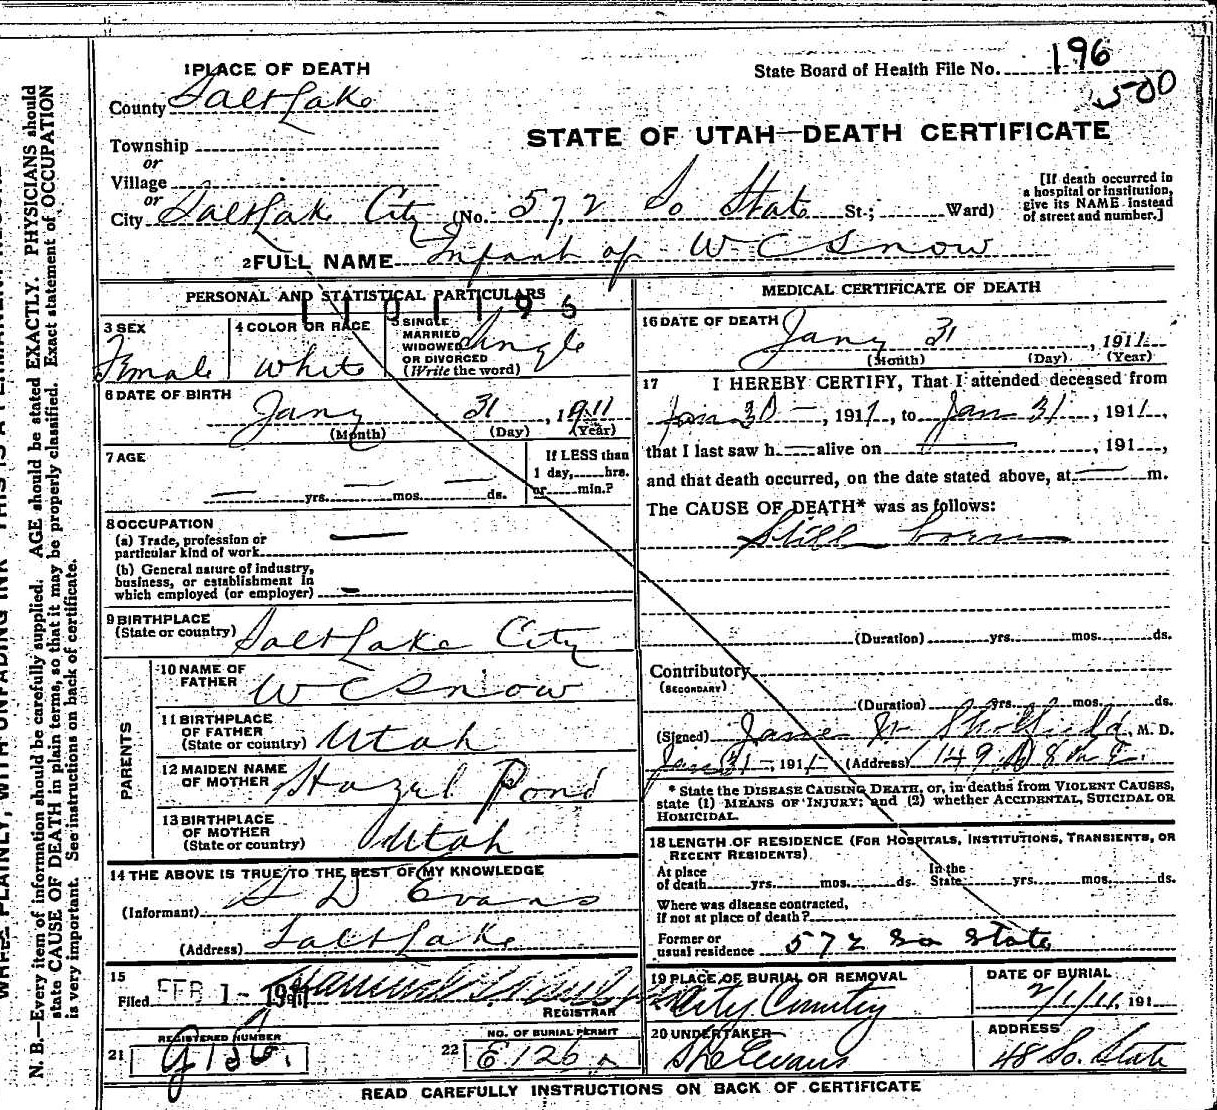 1 PLACE OF DEATH
State Board of Health File No. 196
500
County Salt Lake
STATE OF UTAH—DEATH CERTIFICATE
Township
or
Village
or
City Salt Lake City (No. 572 So State St.; Ward)
[If death occurred in a hospital or institution, give its NAME instead of street and number.]
2 FULL NAME Infant of W C Snow
PERSONAL AND STATISTICAL PARTICULARS
3 SEX
Female
4 COLOR OR RACE
White
5 SINGLE
MARRIED
WIDOWED
OR DIVORCED
(Write the word)
Single
6 DATE OF BIRTH
Jany 31, 1911
(Month) (Day) (Year)
7 AGE
— yrs. — mos. — ds.
If LESS than
1 day, hrs.
or min.?
8 OCCUPATION
(a) Trade, profession or
particular kind of work —
(b) General nature of industry,
business, or establishment in
which employed (or employer) —
9 BIRTHPLACE
(State or country) Salt Lake City
PARENTS
10 NAME OF
FATHER W C Snow
11 BIRTHPLACE
OF FATHER
(State or country) Utah
12 MAIDEN NAME
OF MOTHER Hazel Pond
13 BIRTHPLACE
OF MOTHER
(State or country) Utah
14 THE ABOVE IS TRUE TO THE BEST OF MY KNOWLEDGE
(Informant) D Evans
(Address) Salt Lake
15
Filed FEB 1 - 1911
REGISTRAR
REGISTERED NUMBER
21
NO. OF BURIAL PERMIT
22 E126
MEDICAL CERTIFICATE OF DEATH
16 DATE OF DEATH Jany 31, 1911
(Month) (Day) (Year)
17 I HEREBY CERTIFY, That I attended deceased from
Jan 30 —, 1911, to Jan 31, 1911,
that I last saw h — alive on —, 191 ,
and that death occurred, on the date stated above, at — m.
The CAUSE OF DEATH* was as follows:
Still born
(Duration) yrs. mos. ds.
Contributory
(SECONDARY)
(Duration) yrs. mos. ds.
(Signed) James, M. D.
Jan 31 —, 191 (Address) 149
* State the DISEASE CAUSING DEATH, or, in deaths from VIOLENT CAUSES,
state (1) MEANS OF INJURY; and (2) whether ACCIDENTAL, SUICIDAL OR
HOMICIDAL.
18 LENGTH OF RESIDENCE (FOR HOSPITALS, INSTITUTIONS, TRANSIENTS, OR
RECENT RESIDENTS)
At place
of death yrs. mos. ds.
In the
State yrs. mos. ds.
Where was disease contracted,
if not at place of death?
Former or
usual residence 572 So State
19 PLACE OF BURIAL OR REMOVAL
City Cemetery
DATE OF BURIAL
2/1/11 191
20 UNDERTAKER
Evans
ADDRESS
48 So. State
READ CAREFULLY INSTRUCTIONS ON BACK OF CERTIFICATE
N. B.—Every item of information should be carefully supplied. AGE should be stated EXACTLY. PHYSICIANS should
state CAUSE OF DEATH in plain terms, so that it may be properly classified. Exact statement of OCCUPATION
is very important. See instructions on back of certificate.